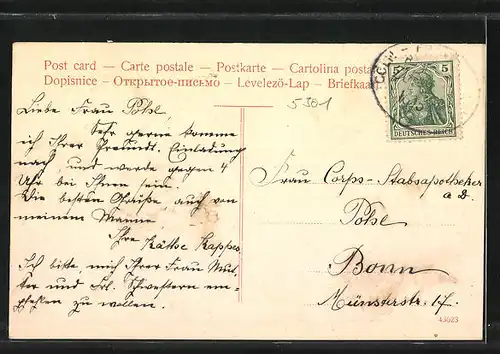 Post card — Carte postale — Postkarte — Cartolina posta
Dopisnice — Открытое-письмо — Levelező-Lap — Briefkaa
5301
5 5
DEUTSCHES REICH
Liebe Frau Potse!
Sehr gerne komme
ich Ihrer freundl. Einladung
nach und werde gegen 4
Uhr bei Ihnen sein.
Die besten Grüße auch von
meinem Manne
Ihre Käthe Kappes.
Ich bitte, mich Ihrer Frau Mut-
ter und Frl. Schwestern em-
pfehlen zu wollen.
Frau Corps-Stabsapotheker
a D.
Potse
Bonn
Münsterstr. 17.
43023